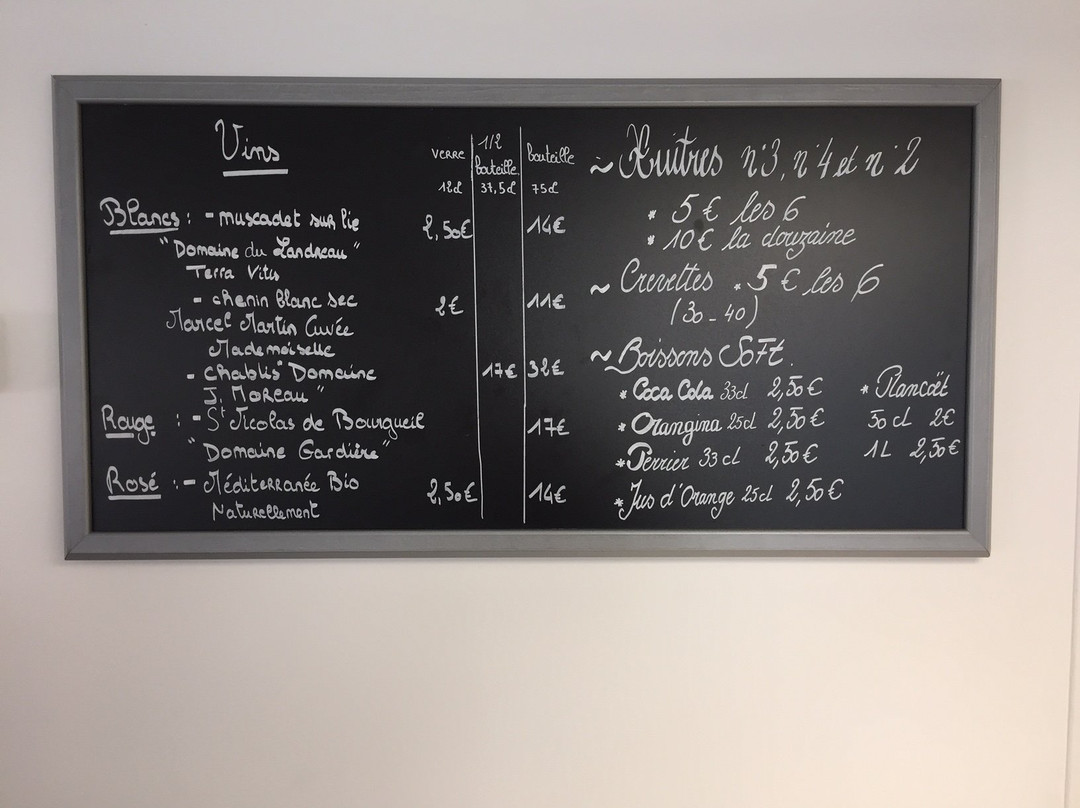 Vins
verre
1/2
bouteille
bouteille
12cl
37,5cl
75cl
Blancs : - muscadet sur lie 2,50€ 14€
"Domaine du Landreau"
Terra Vitis
- chenin blanc sec 2€ 11€
Marcel Martin Cuvée
Mademoiselle
- Chablis "Domaine 17€ 32€
J. Moreau"
Rouge : - St Nicolas de Bourgueil 17€
"Domaine Gardière"
Rosé : - Méditerranée Bio 2,50€ 14€
Naturellement
~ Huîtres n°3, n°4 et n°2
* 5€ les 6
* 10€ la douzaine
~ Crevettes * 5€ les 6
(30-40)
~ Boissons Soft
* Coca Cola 33cl 2,50€ * Plancoët
* Orangina 25cl 2,50€ 50 cl 2€
* Perrier 33 cl 2,50€ 1L 2,50€
* Jus d'Orange 25cl 2,50€